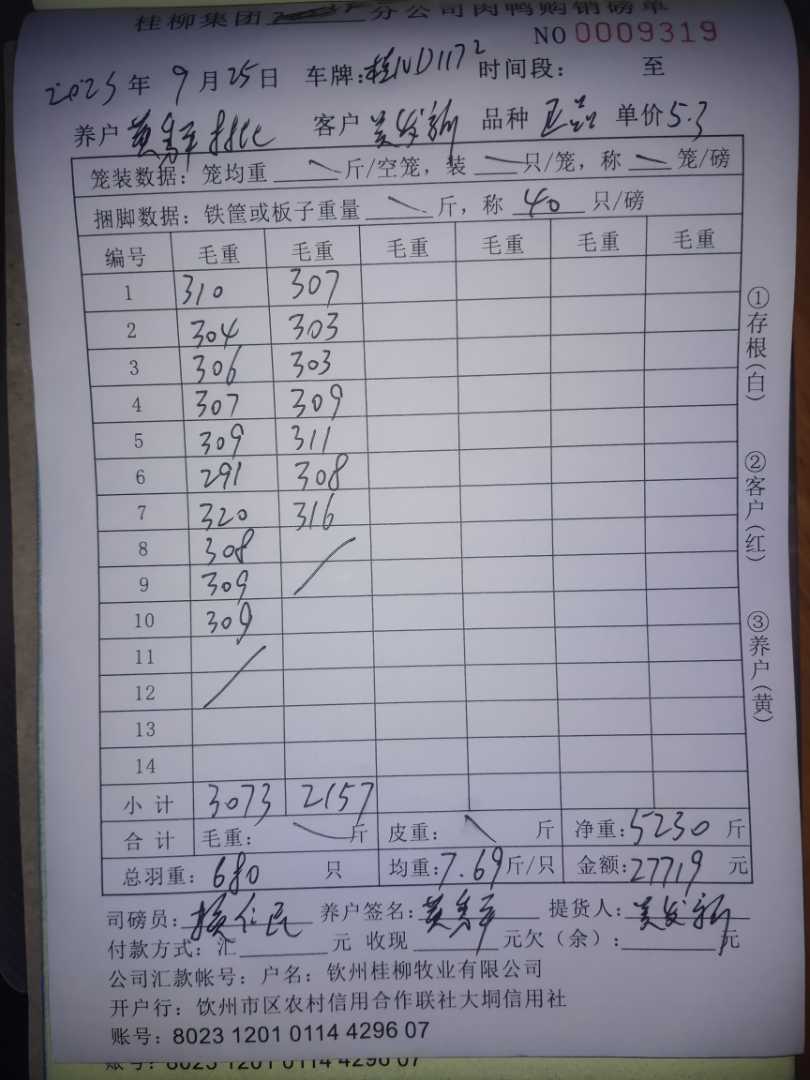 桂柳集团 分公司肉鸭购销磅单
NO 0009319
2023年9月25日 车牌:桂ND1172 时间段: 至
养户 客户 吴发新 品种 正品 单价5.3
笼装数据: 笼均重 斤/空笼, 装 只/笼, 称 笼/磅
捆脚数据: 铁筐或板子重量 斤, 称 40 只/磅
编号 毛重 毛重 毛重 毛重 毛重 毛重
1 310 307
2 304 303
3 306 303
4 307 309
5 309 311
6 291 308
7 320 316
8 308
9 309
10 309
11
12
13
14
小计 3073 2157
合计 毛重: 斤 皮重: 斤 净重:5230 斤
总羽重: 680 只 均重:7.69斤/只 金额:27719 元
司磅员: 养户签名: 提货人: 吴发新
付款方式: 汇 元 收现 元欠(余): 元
公司汇款帐号: 户名: 钦州桂柳牧业有限公司
开户行: 钦州市区农村信用合作联社大垌信用社
账号: 8023 1201 0114 4296 07
账号: 8023 1201 0114 4296 07
①存根(白)
②客户(红)
③养户(黄)